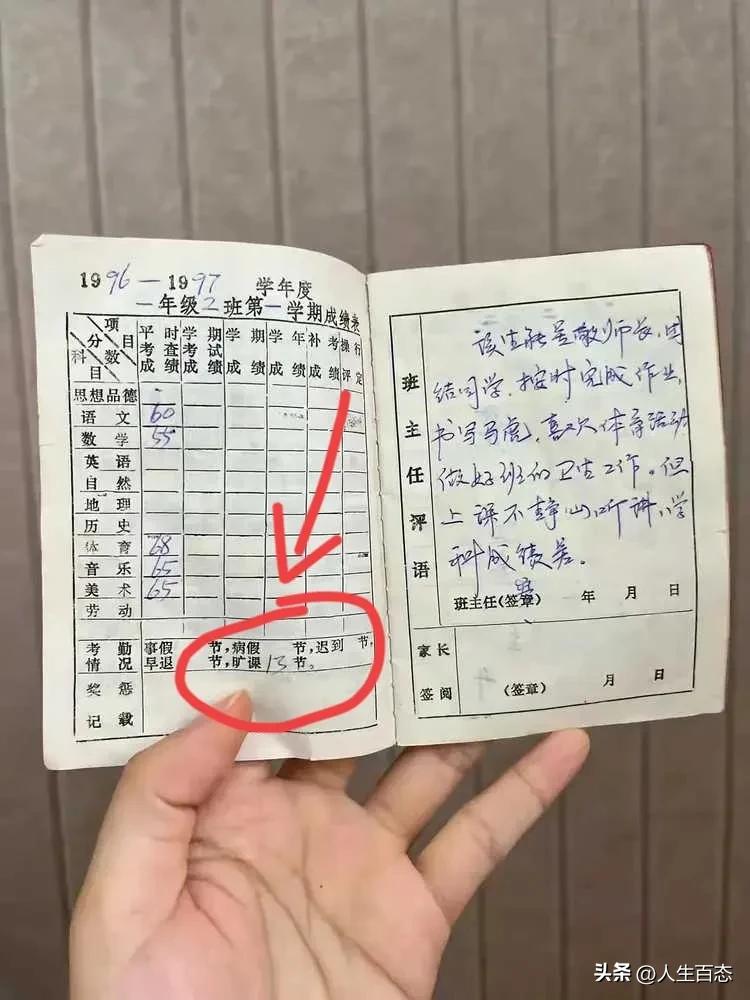 1996-1997 学年度
一年级2班第一学期成绩表
项目
分数
科目
平时考查成绩
学期考试成绩
学期成绩
学年成绩
补考成绩
操行评定
思想品德
语文 60
数学 55
英语
自然
地理
历史
体育 68
音乐 65
美术 65
劳动
考勤情况
事假 节,病假 节,迟到 节,
早退 节,旷课13节。
奖惩记载
班主任评语
该生能尊敬师长,团
结同学,按时完成作业,
书写马虎,喜欢体育活动
做好班的卫生工作。但
上课不静心听讲,学
科成绩差。
班主任(签章) 年 月 日
家长签阅
(签章) 月 日
头条 @人生百态